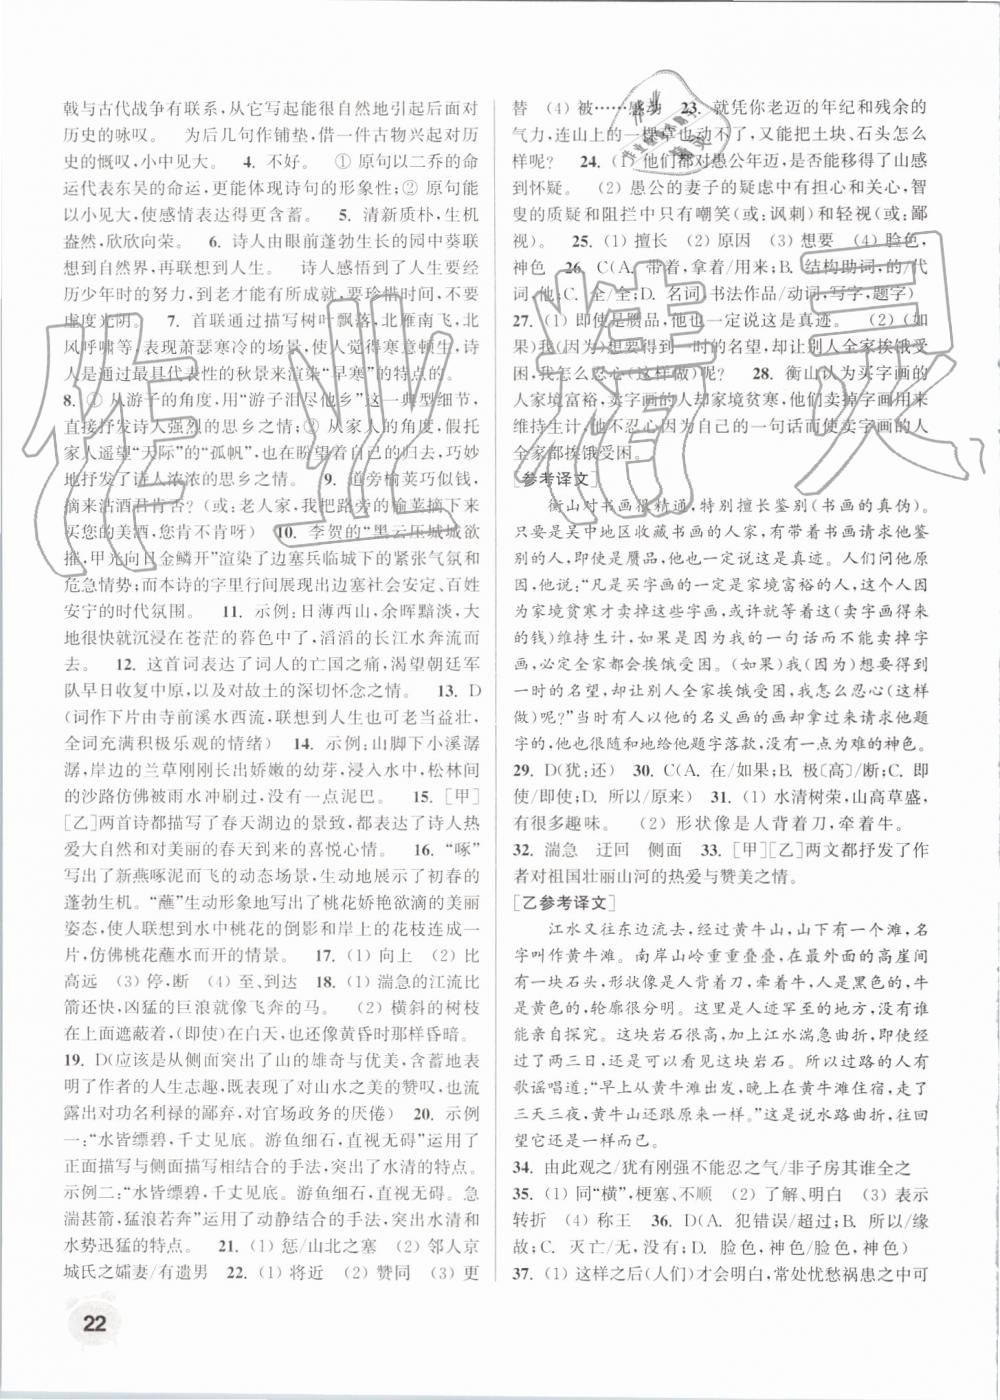 戟与古代战争有联系,从它写起能很自然地引起后面对
历史的咏叹。 为后几句作铺垫,借一件古物兴起对历
史的慨叹,小中见大。 4. 不好。 ① 原句以二乔的命运
代表东吴的命运,更能体现诗句的形象性;② 原句能
以小见大,使情感表达得更含蓄。 5. 清新质朴,生机
盎然,欣欣向荣。 6. 诗人由眼前蓬勃生长的园中葵联
想到自然界,再联想到人生。 诗人感悟到了人生要经
历少年时的努力,到老才能有所成就,要珍惜时间,不要
虚度光阴。 7. 首联通过描写树叶飘落,北雁南飞,北
风呼啸等,表现萧瑟寒冷的场景,使人觉得寒意顿生,诗
人通过最具代表性的秋景来渲染“早寒”的特点的。
8. ① 从游子的角度,用“游子泪尽他乡”这一典型细节,
直接抒发诗人强烈的思乡之情;② 从家人的角度,假托
家人遥望“天际”的“孤帆”,也在盼望着自己的归来,巧妙
地抒发了诗人浓浓的思乡之情。 9. 道旁榆荚巧似钱,
摘来沽酒君肯否?(或:老人家,我把路旁的榆荚摘下来
买您的美酒,您肯不肯呀) 10. 李贺的“黑云压城城欲
摧,甲光向日金鳞开”渲染了边塞兵临城下的紧张气氛和
危急情势;而本诗的字里行间展现出边塞社会安定、百姓
安宁的时代氛围。 11. 示例:日薄西山,余晖黯淡,大
地很快就沉浸在苍茫的暮色中了,滔滔的长江水奔流而
去。 12. 这首词表达了词人的亡国之痛,渴望朝廷军
队早日收复中原,以及对故土的深切怀念之情。 13. D
(词作下片由寺前溪水西流,联想到人生也可老当益壮,
全词充满积极乐观的情绪) 14. 示例:山脚下小溪潺
潺,岸边的兰草刚刚长出娇嫩的幼芽,浸入溪水,松林间
的沙路仿佛被雨水冲刷过,没有一点泥巴。 15. [甲]
[乙]两首诗都描写了春天湖边的景致,都表达了诗人热
爱大自然和对美丽的春天到来的喜悦心情。 16. “啄”
写出了新燕啄泥而飞的动态场景,生动地展现了初春的
蓬勃生机。“蘸”生动形象地写出了桃花娇艳欲滴的美丽
姿态,使人联想到水中桃花的倒影和岸上的花枝连成一
片,仿佛桃花蘸水而开的情景。 17. (1) 向上 (2) 比
高远 (3) 停,断 (4) 至、到达 18. (1) 湍急的江流比
箭还快,凶猛的巨浪就像飞奔的马。 (2) 横斜的树枝
在上面遮蔽着,(即使)在白天,也还像黄昏时那样昏暗。
19. D(应该是从侧面突出了山的雄奇与优美,含蓄地表
明了作者的人生志趣,即对山水之美的赞叹,也流
露出对功名利禄的鄙弃,对官场政务的厌倦) 20. 示例
一:“水皆缥碧,千丈见底。游鱼细石,直视无碍”运用了
正面描写与侧面描写相结合的手法,突出水清的特点。
示例二:“水皆缥碧,千丈见底。游鱼细石,直视无碍。急
湍甚箭,猛浪若奔”运用了动静结合的手法,突出水清和
水势迅猛的特点。 21. (1) 惩/山北之塞 (2) 邻人京
城氏之孀妻/有遗男 22. (1) 将近 (2) 赞同 (3) 更
替 (4) 被……感动 23. 就凭你老迈的年纪和残余的
气力,连山上的一棵草也动不了,又能把土块、石头怎么
样呢? 24. (1) 他们都对愚公年迈,是否能移得了山感
到怀疑。 (2) 愚公的妻子的疑虑中有担心和关心,智
叟的质疑和阻拦中只有嘲笑(或:讽刺)和轻视(或:鄙
视)。 25. (1) 擅长 (2) 原因 (3) 想要 (4) 脸色,
神色 26. C(A. 带着,拿着/用来;B. 结构助词,的/代
词,他;C. 全/全;D. 名词,书法作品/动词,写字,题字)
27. (1) 即使是赝品,他也一定说这是真迹。 (2) (如
果)我(因为)想要得到一时的名望,却让别人全家挨饿受
困,我怎么忍心(这样做)呢? 28. 衡山认为买字画的
人家境富裕,卖字画的人却家境贫寒,他们卖字画用来
维持生计,他不忍心因为自己的一句话而使卖字画的人
全家都挨饿受困。
[参考译文]
衡山对书画很精通,特别擅长鉴别(书画的真伪)。
只要是吴中地区收藏书画的人家,有带着书画请求他鉴
别的人,即使是赝品,他也一定说这是真迹。人们问他原
因,他说:“凡是买字画的一定是家境富裕的人,有的人因
为家境贫寒才卖掉这些字画,或许等着这(卖字画得来
的钱)维持生计,如果因为我的一句话而不能卖掉字
画,必定全家都会挨饿受困。(如果)我(因为)想要得到
一时的名望,却让别人全家挨饿受困,我怎么忍心(这样
做)呢?”当时有人以他的名义画的画却拿过来请求他题
字的,他也很随和地给他题字落款,没有一点为难的神色。
29. D(犹:还) 30. C(A. 在/如果;B. 极〔高〕/断;C. 即
使/即使;D. 所以/原来) 31. (1) 水清树荣,山高草盛,
有很多趣味。 (2) 形状像是人背着刀,牵着牛。
32. 湍急 迂回 侧面 33. [甲][乙]两文都抒发了作
者对祖国壮丽山河的热爱与赞美之情。
[乙参考译文]
江水又往东边流去,经过黄牛山,山下有一个滩,名
字叫作黄牛滩。南岸山岭重重叠叠,在外面的高崖间有
一块大石头,形状像是人背着刀,牵着牛,人是黑色的,牛
是黄色的,轮廓很分明。这里是人迹罕至的地方,没有谁
能亲自探究。这块岩石很高,加上江水湍急曲折,即使经
过了两三日,还是可以看见这块岩石。所以过路的人有
歌谣唱道:“早上从黄牛滩出发,晚上在黄牛滩住宿,走了
三天三夜,黄牛山还跟原来一样。”这是说水路曲折,往回
望它还是一样而已。
34. 由此观之/犹有刚强不能忍之气/非子房其谁全之
35. (1) 同“横”,梗塞、不顺 (2) 了解、明白 (3) 表示
转折 (4) 称王 36. D(A. 犯错误/超过;B. 所以/缘
故;C. 灭亡/无,没有;D. 脸色,神色/脸色,神色)
37. (1) 这样之后(人们)才会明白,常处忧愁祸患之中可
22
作业精灵